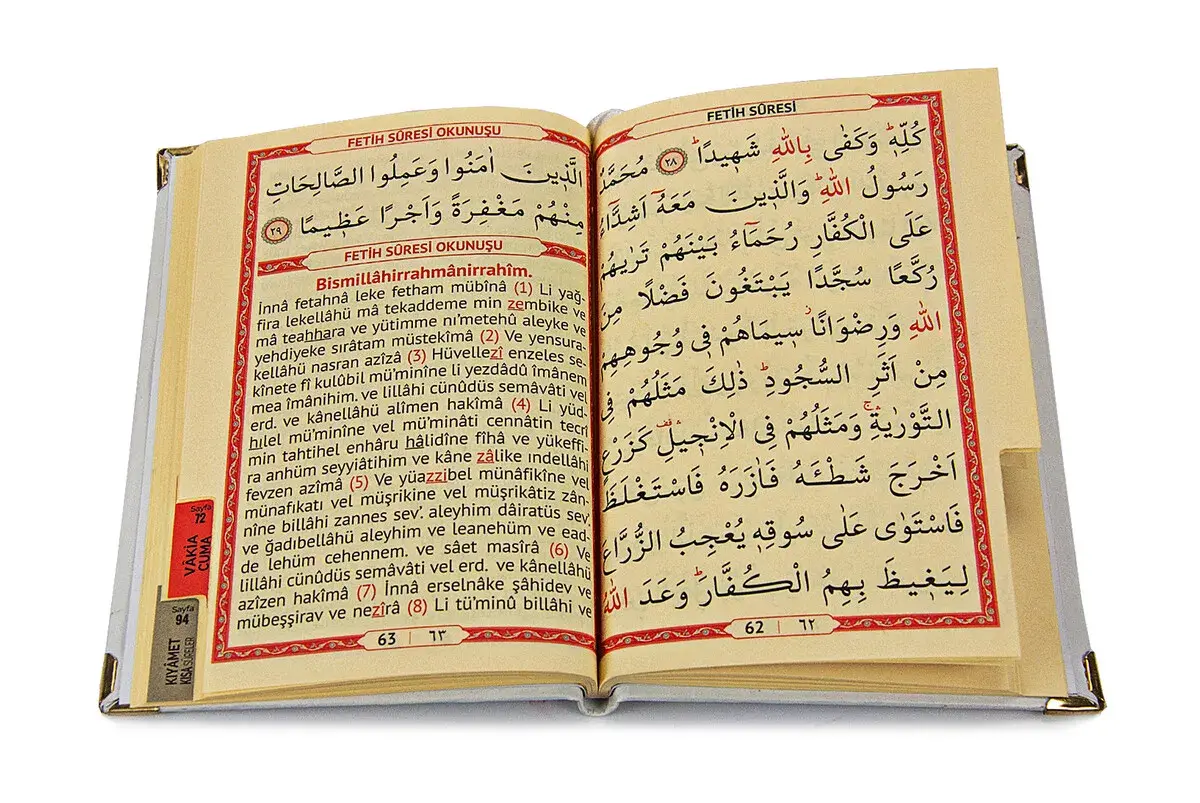 FETİH SÛRESİ
كُلِّه۪ۜ وَكَفٰى بِاللّٰهِ شَه۪يدًاۜ ﴿٢٨﴾ مُحَمَّدٌ
رَسُولُ اللّٰهِۜ وَالَّذ۪ينَ مَعَهُٓ اَشِدَّٓاءُ
عَلَى الْكُفَّارِ رُحَمَٓاءُ بَيْنَهُمْ تَرٰيهُمْ
رُكَّعًا سُجَّدًا يَبْتَغُونَ فَضْلًا مِنَ
اللّٰهِ وَرِضْوَانًاۘ س۪يمَاهُمْ ف۪ي وُجُوهِهِمْ
مِنْ اَثَرِ السُّجُودِۜ ذٰلِكَ مَثَلُهُمْ فِي
التَّوْرٰيةِۚ وَمَثَلُهُمْ فِي الْاِنْج۪يلِ۠ كَزَرْعٍ
اَخْرَجَ شَطْـَٔهُ فَاٰزَرَهُ فَاسْتَغْلَظَ
فَاسْتَوٰى عَلٰى سُوقِه۪ يُعْجِبُ الزُّرَّاعَ
لِيَغ۪يظَ بِهِمُ الْكُفَّارَۜ وَعَدَ اللّٰهُ
62 | ٦٢
FETİH SÛRESİ OKUNUŞU
الَّذ۪ينَ اٰمَنُوا وَعَمِلُوا الصَّالِحَاتِ
مِنْهُمْ مَغْفِرَةً وَاَجْرًا عَظ۪يمًا ﴿٢٩﴾
FETİH SÛRESİ OKUNUŞU
Bismillâhirrahmânirrahîm.
İnnâ fetahnâ leke fetham mübînâ (1) Li yağ-
fira lekellâhü mâ tekaddeme min zembike ve
mâ teahhara ve yütimme nı’metehû aleyke ve
yehdiyeke sırâtam müstekîmâ (2) Ve yensura-
kellâhü nasran azîzâ (3) Hüvellezî enzeles se-
kînete fî kulûbil mü’minîne li yezdâdû îmânem
mea îmânihim. ve lillâhi cünûdüs semâvâti vel
erd. ve kânellâhü alîmen hakîmâ (4) Li yüd-
hılel mü’minîne vel mü’minâti cennâtin tecrî
min tahtihel enhâru hâlidîne fîhâ ve yükeffi-
ra anhüm seyyiâtihim ve kâne zâlike ındellâhi
fevzen azîmâ (5) Ve yüazzibel münâfikîne vel
münafıkati vel müşrikîne vel müşrikâtiz zân-
nîne billâhi zannes sev’. aleyhim dâiratüs sev’.
ve ğadıbellâhü aleyhim ve leanehüm ve ead-
de lehüm cehennem. ve sâet masîrâ (6) Ve
lillâhi cünûdüs semâvâti vel erd. ve kânellâhü
azîzen hakîmâ (7) İnnâ erselnâke şâhidev ve
mübeşşirav ve nezîrâ (8) Li tü’minû billâhi ve
63 | ٦٣
Sayfa
72
VÂKIA
CUMA
Sayfa
94
KIYÂMET
KISA SÛRELER